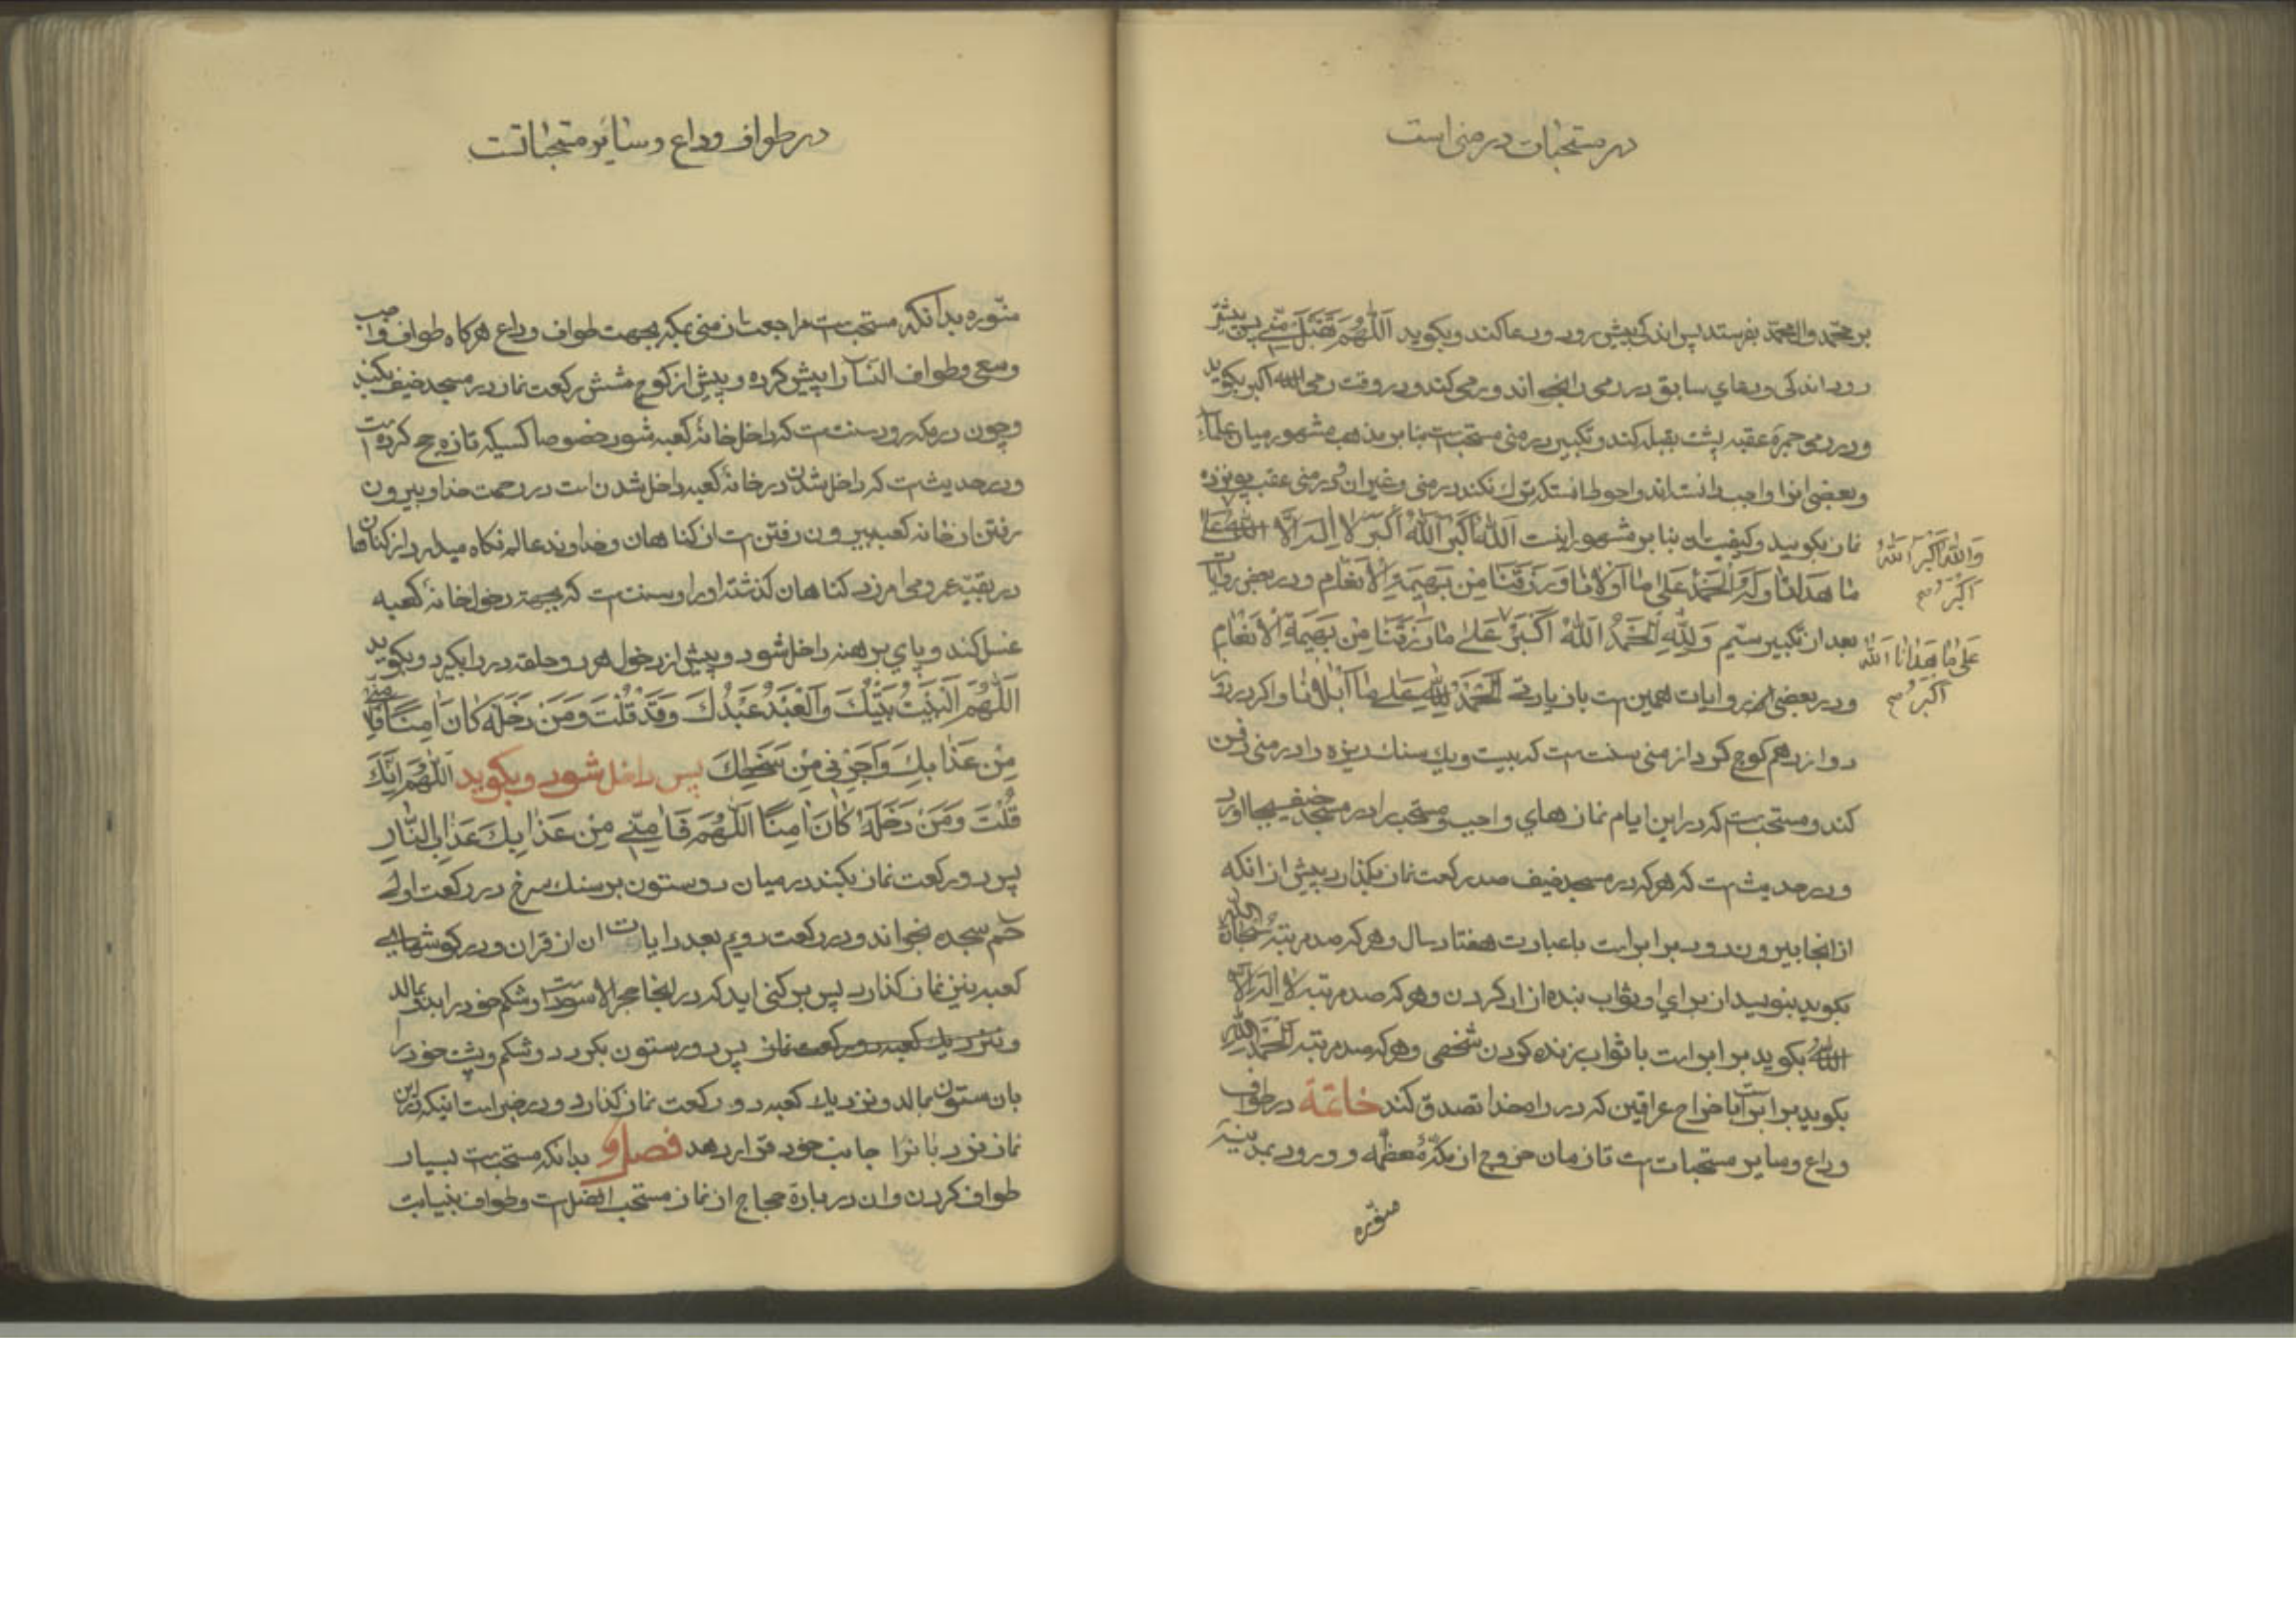 در مستحبات در منی است
بر محمد وال محمد بفرستد پس اندکی پیش رود و دعا کند و بکوید اَللّهُمَّ تَقَبَّلْ مِنّی پس پیشتر
رود اندکی و دعای سابق در رمی را بخواند و رمی کند و در وقت رمی الله اکبر بکوید
و در رمی جمرۀ عقبه پشت بقبله کند و تکبیر در منی مستحب است بنا بر مذهب مشهور میان علماء
و بعضی انرا واجب دانسته‌اند و احوط انست که ترك نکند در منی و غیر ان و در منی عقب پونزده
نماز بکویند و کیفیت ان بنا بر مشهور اینست اَللّهُ اَکْبَرُ اَللّهُ اَکْبَرُ لا اِلهَ اِلاَّ اللّهُ
وَاللّهُ اَکْبَرُ اَللّهُ
اَکْبَرُ صح
ما هَدانا وَلَهُ الْحَمْدُ عَلی ما اَوْلانا وَرَزَقَنا مِنْ بَهیمَةِ الْاَنْعامِ و در بعضی روایات
بعد از تکبیر سیّم وَلِلّهِ الْحَمْدُ اَللّهُ اَکْبَرُ عَلی ما رَزَقَنا مِنْ بَهیمَةِ الْاَنْعامِ
عَلی ما هَدانا اَللّهُ
اَکْبَرُ صح
و در بعضی از روایات همین است بان یادتی اَلْحَمْدُ لِلّهِ عَلی ما اَبْلانا و اکر در روز
دوازدهم کوچ کرد از منی سنت است که بیست و یك سنك ریزه را در منی دفن
کند و مستحب است که در این ایام نمازهای واجب و مستحب را در مسجد خیف بجا اورد
و در حدیث است که هر که در مسجد خیف صد رکعت نماز بکذارد پیش از انکه
از انجا بیرون رود برابر است با عبادت هفتاد سال و هر که صد مرتبه سُبْحانَ اللّهِ
بکوید بنویسد از برای او ثواب بنده ازاد کردن و هر که صد مرتبه لا اِلهَ اِلاَّ
اللّهُ بکوید برابر است با ثواب زنده کردن شخصی و هر که صد مرتبه اَلْحَمْدُ لِلّهِ
بکوید برابر است با خراج عراقین که در راه خدا تصدق کند خاتمة در طواف
وداع و سایر مستحبات است تا زمان خروج از مکّۀ معظّمه و ورود بمدینۀ
منوّره
در طواف وداع و سایر مستحباتست
منوّره بدانکه مستحب است مراجعت از منی بمکه بجهت طواف وداع هرکاه طواف واجب
و سعی و طواف النساء را پیش کرده و پیش از کوچ شش رکعت نماز در مسجد خیف بکند
و چون در مکه رود سنت است که داخل خانۀ کعبه شود خصوصا کسیکه تازه حج کرده است
و در حدیث است که داخل شدن در خانۀ کعبه داخل شدن است در رحمت خدا و بیرون
رفتن از خانه کعبه بیرون رفتن است از کناهان و خداوند عالم نکاه میدارد از کناهان
در بقیۀ عمر و می‌امرزد کناهان کذشته او را و سنت است که بجهة دخول خانۀ کعبه
غسل کند و پای برهنه داخل شود و پیش از دخول هر دو حلقه در را بکیرد و بکوید
اَللّهُمَّ اَلْبَیْتُ بَیْتُكَ وَالْعَبْدُ عَبْدُكَ وَقَدْ قُلْتَ وَمَنْ دَخَلَهُ کانَ امِناً فَامِنّی
مِنْ عَذابِكَ وَاَجِرْنی مِنْ سَخَطِكَ پس داخل شود و بکوید اَللّهُمَّ اِنَّكَ
قُلْتَ وَمَنْ دَخَلَهُ کانَ امِناً اَللّهُمَّ فَامِنّی مِنْ عَذابِكَ عَذابِ النّارِ
پس دو رکعت نماز بکند در میان دو ستون بر سنك سرخ در رکعت اولی
حم سجده بخواند و در رکعت دویم بعدد ایات ان از قران و در کوشهای
کعبه نیز نماز کذارد پس برکنی اید که در انجا حجر الاسود است و شکم خود را بدان بمالد
و نزدیك کعبه دو رکعت نماز پس دور ستون بکردد و شکم و پشت خود را
بان ستون بمالد و نزدیك کعبه دو رکعت نماز کذارد و در خبر است اینکه در این
نماز نزد بانرا جانب خود قرار دهد فصل و بدانکه مستحب است بسیار
طواف کردن و ان در بارۀ حجاج از نماز مستحب افضل است و طواف بنیابت